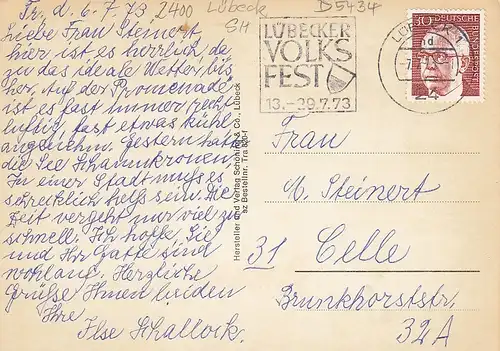 Tr., d. 6.7.73
2400 Lübeck
SH
D5434
Liebe Frau Steinert,
hier ist es herrlich, da
zu das ideale Wetter, bis
her. Auf der Promenade
ist es fast immer recht
luftig, fast etwas kühl
angezeichn. Gestern hatte
die See Schaumkronen.
In einer Stadt muß es
schrecklich heiß sein. Die
Zeit vergeht nur viel zu
schnell. Ich hoffe, Sie
und Ihr Gatte sind
wohlauf. Herzliche
Grüße Ihnen beiden
Ihre
Ilse Schallock.
Hersteller und Verlag Schöning & Co., Lübeck
Bestellnr. Tra
LÜBECKER
VOLKS
FEST
13.–29.7.73
30 DEUTSCHE BUNDESPOST
24
Frau
M. Steinert
31 Celle
Brunkhorststr.
32A